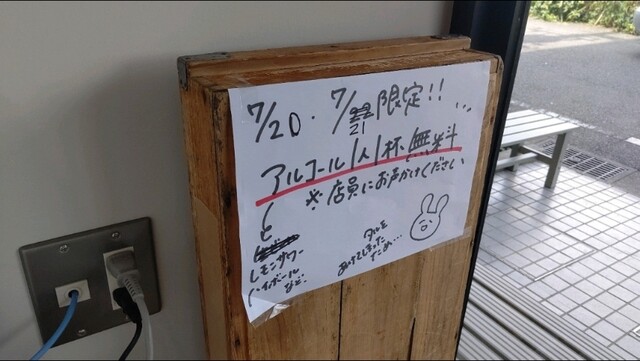 7/20・7/21 限定!! …
アルコール1人1杯無料
※店員にお声かけください
レモンサワー
ハイボール
など
タルを
あけてしまった
ため…